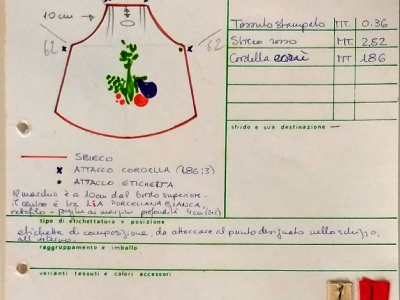 10 cm
62
62
Tessuto stampato MT. 0.36
Sbieco rosso MT 2,52
Cordella MT 1.86
sfrido e sua destinazione —
SBIECO
x ATTACCO CORDELLA (1.86:3)
• ATTACCO ETICHETTA
Il marchio è a 10cm dal bordo superiore.
PORCELLANA BIANCA,
tipo di etichettatura e posizione
etichetta di composizione, da attaccare al punto designato nello schizzo,
all'interno.
raggruppamento e imballo
varianti tessuti e colori accessori
1